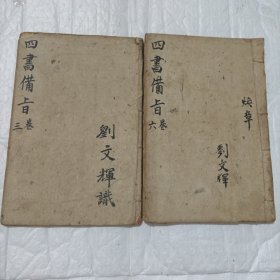 四書備旨
三卷
劉文輝識
四書備旨
六卷
劉文輝